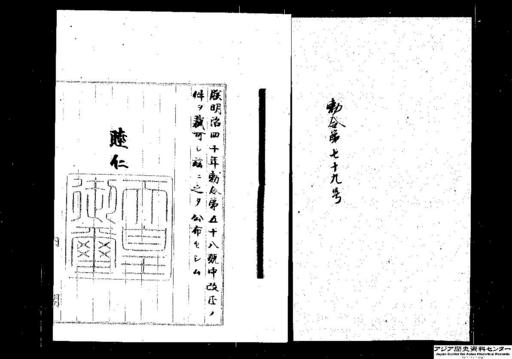 勅令第七十九号
朕明治四十年勅令第五十八號中改正ノ
件ヲ裁可シ玆ニ之ヲ公布セシム
睦仁
天皇
御璽
アジア歴史資料センター
Japan Center for Asian Historical Records